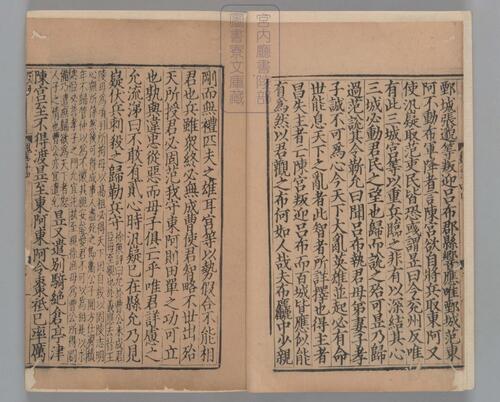 鄄城張邈等叛迎呂布郡縣響應唯鄄城范東
阿不動布軍降者言陳宮欲自將兵取東阿又
使汎嶷取范吏民皆恐彧謂昱曰今兗州反唯
有此三城宮等以重兵臨之非有以深結其心
三城必動君民之望也歸而說之殆可昱乃歸
過范說其令靳允曰聞呂布執君母弟妻子孝
子誠不可為心今天下大亂英雄並起必有命
世能息天下之亂者此智者所詳擇也得主者
昌失主者亡陳宮叛迎呂布而百城皆應似能
有為然以君觀之布何如人哉夫布麤中少親
剛而無禮匹夫之雄耳宮等以勢假合不能相
君也兵雖眾終必無成曹使君智略不世出殆
天所授君必固范我守東阿則田單之功可立
也孰與違忠從惡而母子俱亡乎唯君詳慮之
允流涕曰不敢有貳心時汎嶷已在縣允乃見
嶷伏兵刺殺之歸勒兵守
昱又遣別騎絕倉亭津
陳宮至不得渡昱至東阿東阿令棗祗已率厲
宮内廳書陵部
圖書寮文庫藏